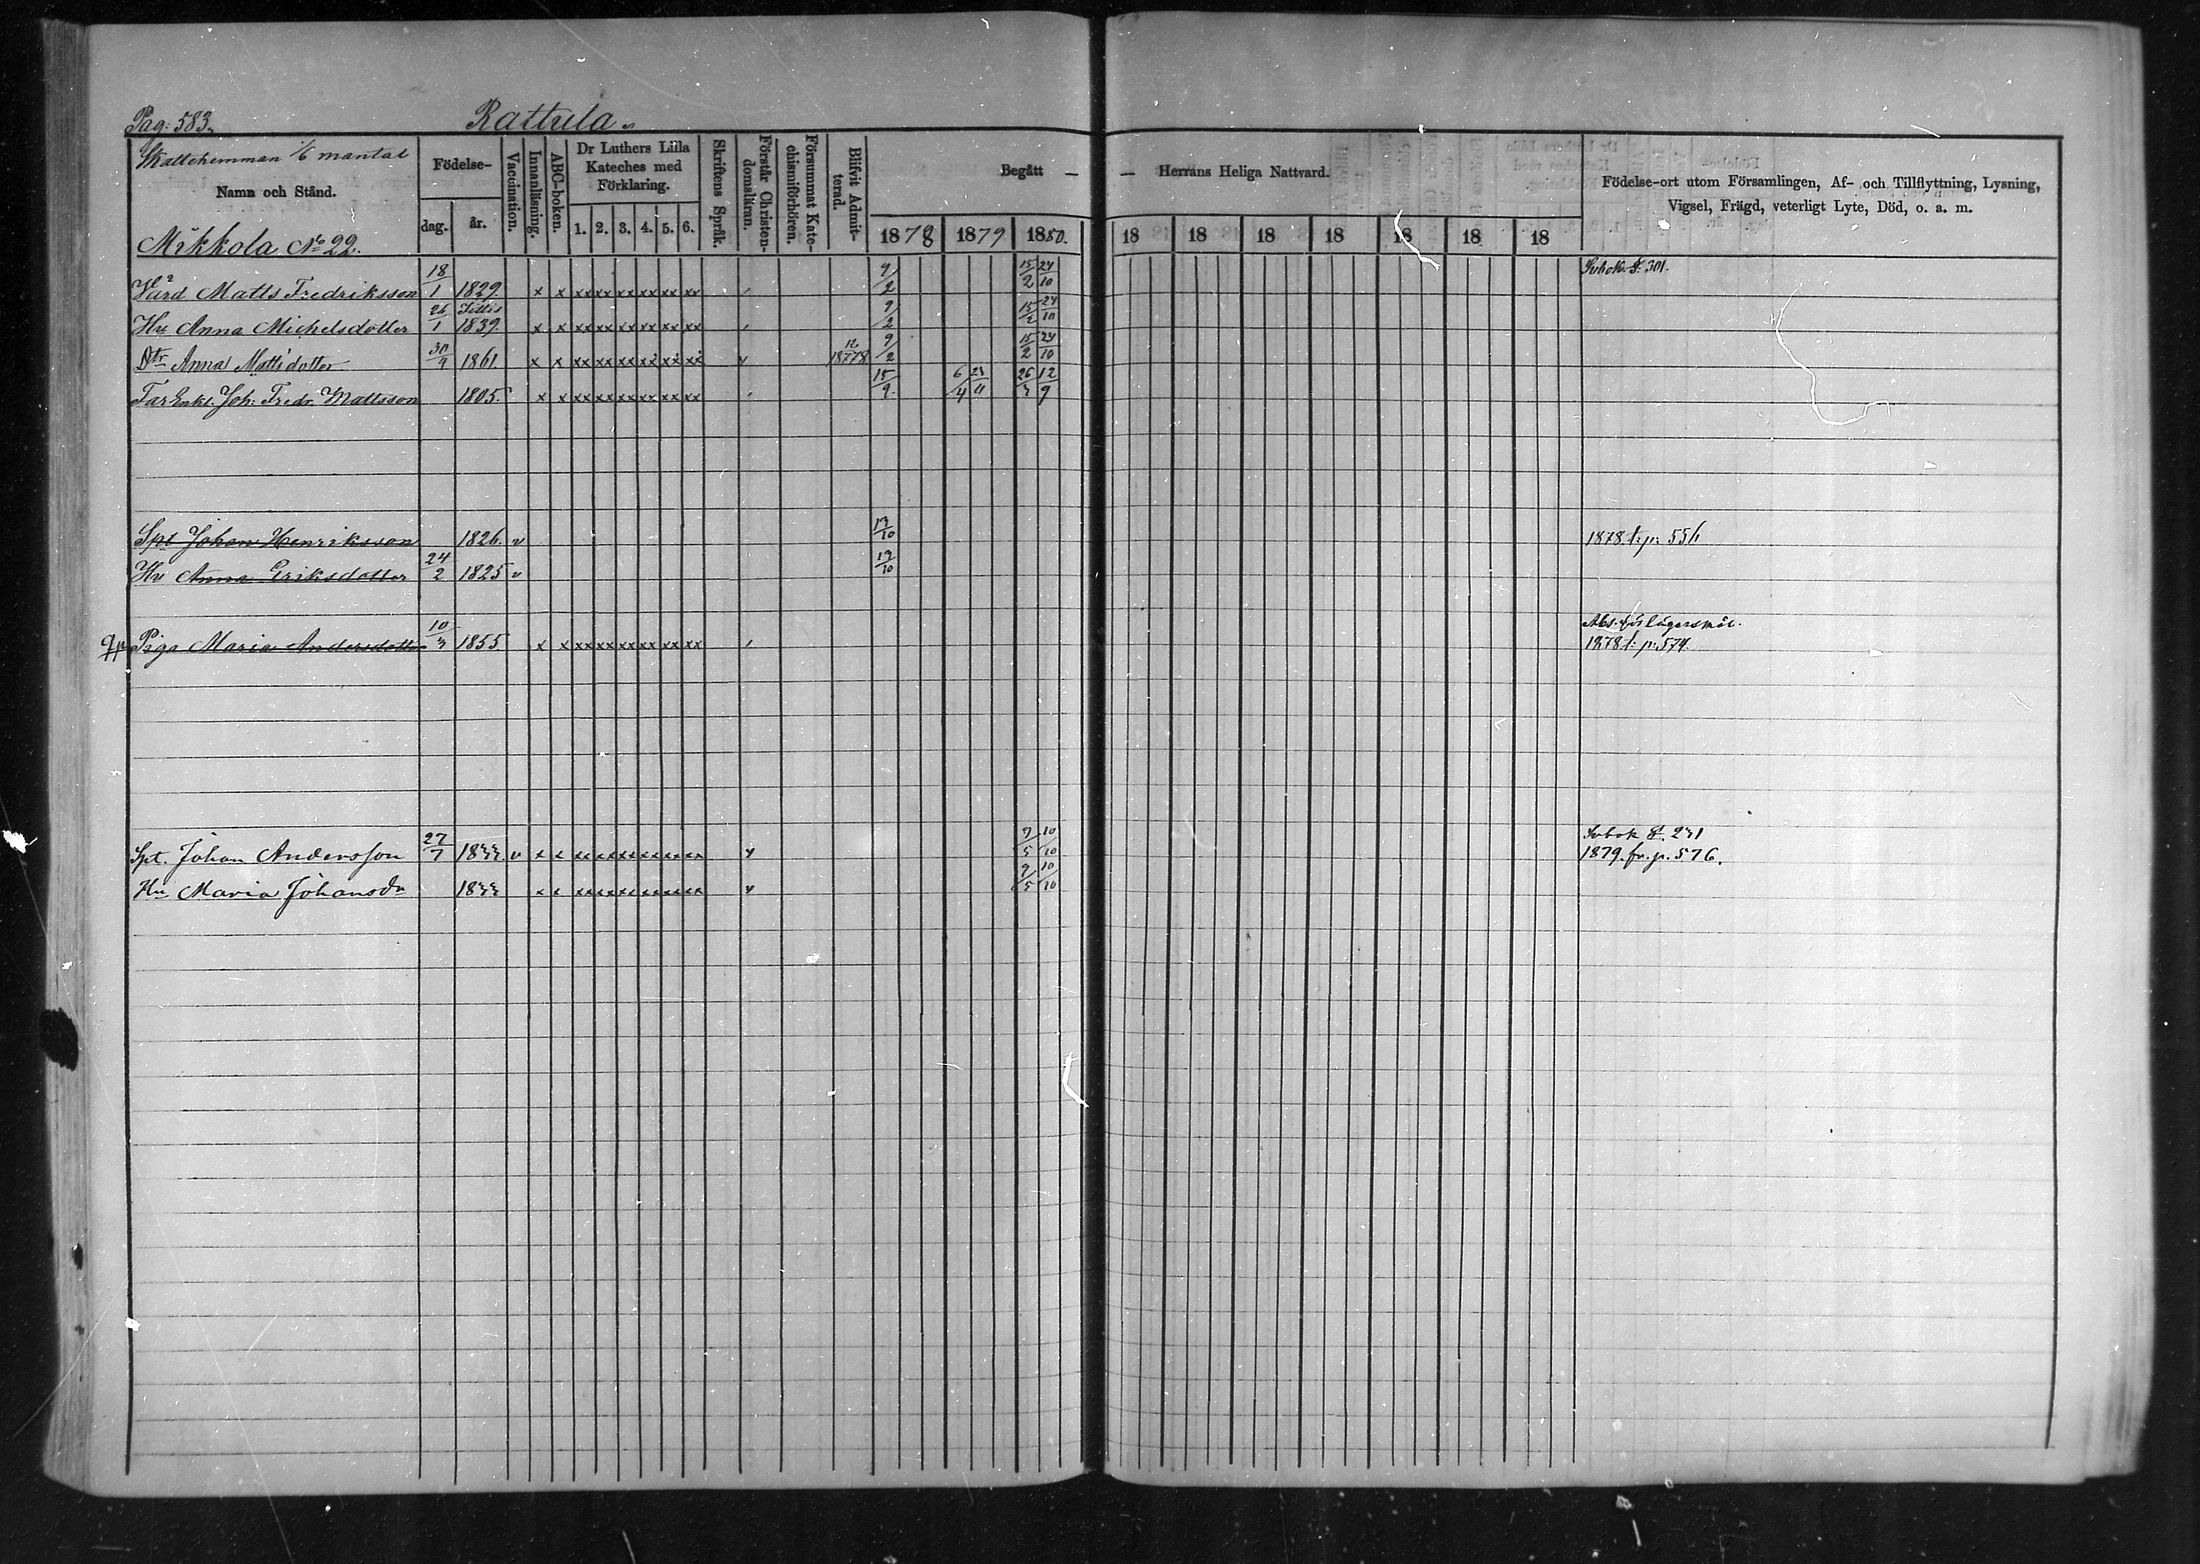 Pag: 583. Rattula.
Skattehemman 1/6 mantal
Namn och Stånd. Födelse- dag. år. Vaccination. Innanläsning. ABC-boken. Dr Luthers Lilla Kateches med Förklaring. 1. 2. 3. 4. 5. 6. Skriftens Språk. Förstår Christendomsläran. Försummat Katechismiförhören. Blifvit Admitterad. Begått — — Herrans Heliga Nattvard. Födelse-ort utom Församlingen, Af- och Tillflyttning, Lysning, Vigsel, Frägd, veterligt Lyte, Död, o. a. m.
1878 1879 1880. 18 18 18 18 18 18 18
Mikkola No 22.
Värd Matts Fredriksson 18/1 1829. x x xx xx xx xx xx xx 9/2 15/2 24/10 Svbok S: 301.
Hu Anna Michelsdotter 26/1 1839. x x xx xx xx xx xx xx 9/2 15/2 24/10
Dtr Anna Mattsdotter 30/4 1861. x x xx xx xx xx xx xx v 9/2 15/2 24/10
Far Enkl. Joh: Fredr. Mattsson 1805. x x xx xx xx xx xx xx 15/9. 6/4 23/11 26/3 12/9
Spt Johan Henriksson 1826. v 13/10 1878 t: p: 556
Hu Anna Eriksdotter 24/2 1825 v 13/10
Piga Maria Andersdotter 10/3 1855 x x xx xx xx xx xx xx Abs. för lägersmål.
1878 t: p: 574.
Spt. Johan Andersson 27/7 1833. v x x xx xx xx xx xx xx v 9/5 10/10 Svbok S. 231
1879. fr. p. 576.
Hu Maria Johansdr 1833 x x xx xx xx xx xx xx v 9/5 10/10